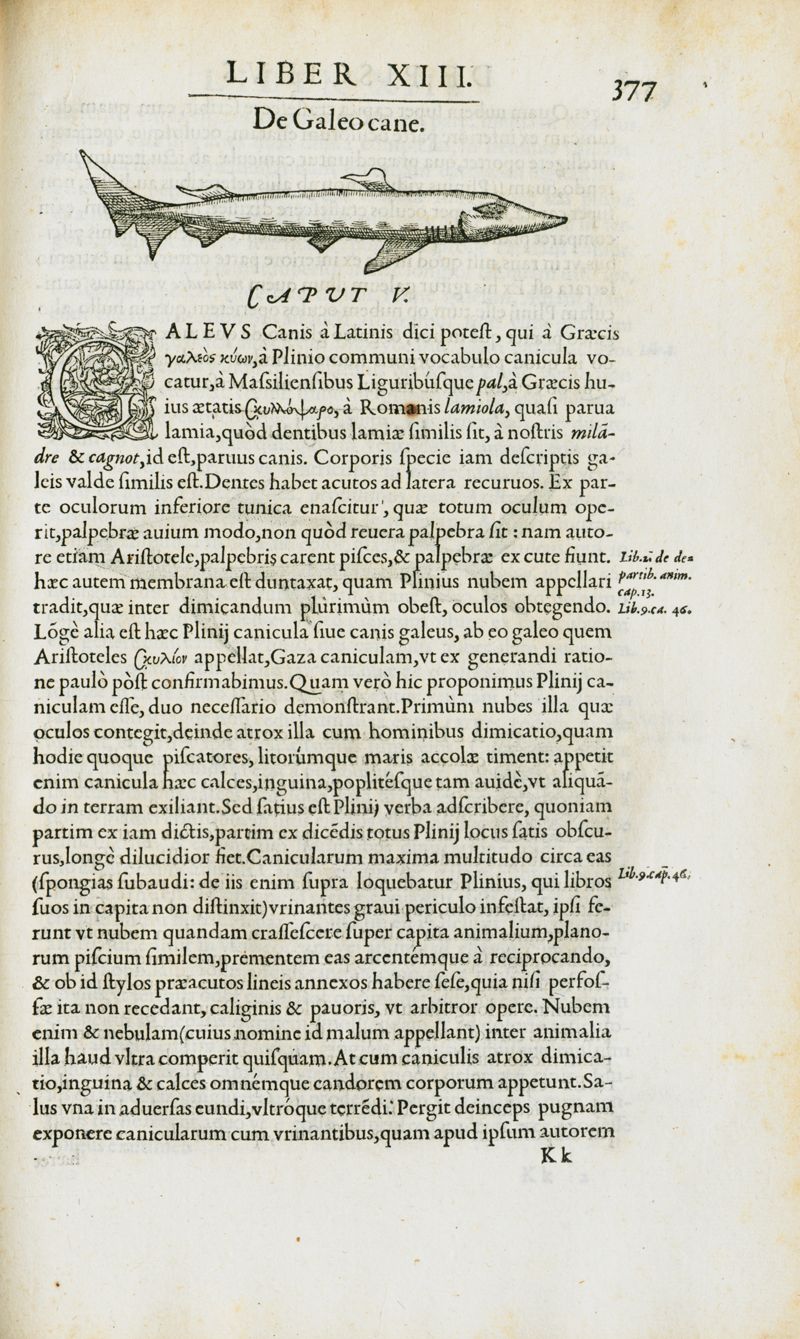 LIBER XIII.
377
De Galeo cane.
CAPUT V.
GALEVS Canis à Latinis dici poteſt, qui à Græcis
γαλεὸς κύων, à Plinio communi vocabulo canicula vo-
catur, à Maſsilienſibus Liguribúſque pal, à Græcis hu-
ius ætatis à Romanis lamiola, quaſi parua
lamia, quòd dentibus lamiæ ſimilis ſit, à noſtris milã-
dre & cagnot, id eſt, paruus canis. Corporis ſpecie iam deſcriptis ga-
leis valde ſimilis eſt. Dentes habet acutos ad latera recuruos. Ex par-
te oculorum inferiore tunica enaſcitur, quæ totum oculum ope-
rit, palpebræ auium modo, non quòd reuera palpebra ſit : nam auto-
re etiam Ariſtotele, palpebris carent piſces, & palpebræ ex cute fiunt.
Lib.2. de de
partib. anim.
cap.13.
hæc autem membrana eſt duntaxat, quam Plinius nubem appellari
tradit, quæ inter dimicandum plurimùm obeſt, oculos obtegendo.
Lib.9.ca. 46.
Lõgè alia eſt hæc Plinij canicula ſiue canis galeus, ab eo galeo quem
Ariſtoteles σκυλίον appellat, Gaza caniculam, vt ex generandi ratio-
ne paulò pòſt confirmabimus. Quam verò hic proponimus Plinij ca-
niculam eſſe, duo neceſſario demonſtrant. Primùm nubes illa quæ
oculos contegit, deinde atrox illa cum hominibus dimicatio, quam
hodie quoque piſcatores, litorúmque maris accolæ timent: appetit
enim canicula hæc calces, inguina, poplitéſque tam auidè, vt aliquã-
do in terram exiliant. Sed ſatius eſt Plinij verba adſcribere, quoniam
partim ex iam dictis, partim ex dicẽdis totus Plinij locus ſatis obſcu-
rus, longè dilucidior fiet. Canicularum maxima multitudo circa eas
(ſpongias ſubaudi: de iis enim ſupra loquebatur Plinius, qui libros
Lib.9.cap.46.
ſuos in capita non diſtinxit) vrinantes graui periculo infeſtat, ipſi fe-
runt vt nubem quandam craſſeſcere ſuper capita animalium, plano-
rum piſcium ſimilem, prementem eas arcentémque à reciprocando,
& ob id ſtylos præacutos lineis annexos habere ſeſe, quia niſi perfoſ-
ſæ ita non recedant, caliginis & pauoris, vt arbitror opere. Nubem
enim & nebulam (cuius nomine id malum appellant) inter animalia
illa haud vltra comperit quiſquam. At cum caniculis atrox dimica-
tio, inguina & calces omnémque candorem corporum appetunt. Sa-
lus vna in aduerſas eundi, vltróque terrẽdi. Pergit deinceps pugnam
exponere canicularum cum vrinantibus, quam apud ipſum autorem
Kk